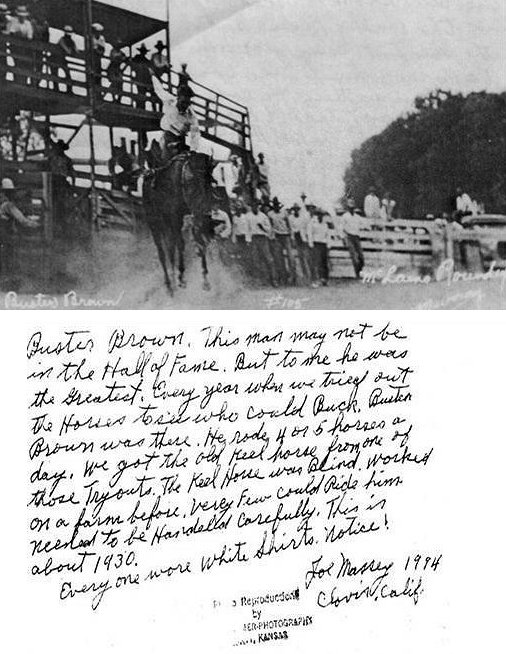 Buster Brown
#105
McLains Roundup
Buster Brown. This man may not be
in the Hall of Fame. But to me he was
the Greatest. Every year when we tried out
the Horses to see who could Buck, Buster
Brown was there. He rode 4 or 5 horses a
day. We got the old Keel horse from one of
those Tryouts. The Keel Horse was Blind. Worked
on a farm before. Verey Few could Ride him.
needed to be Handelld Carefully. This is
about 1930.
Every one wore White Shirts. Notice!
Joe Massey 1994
Clovis, Calif.
Reproductions
by
PHOTOGRAPHY
KANSAS